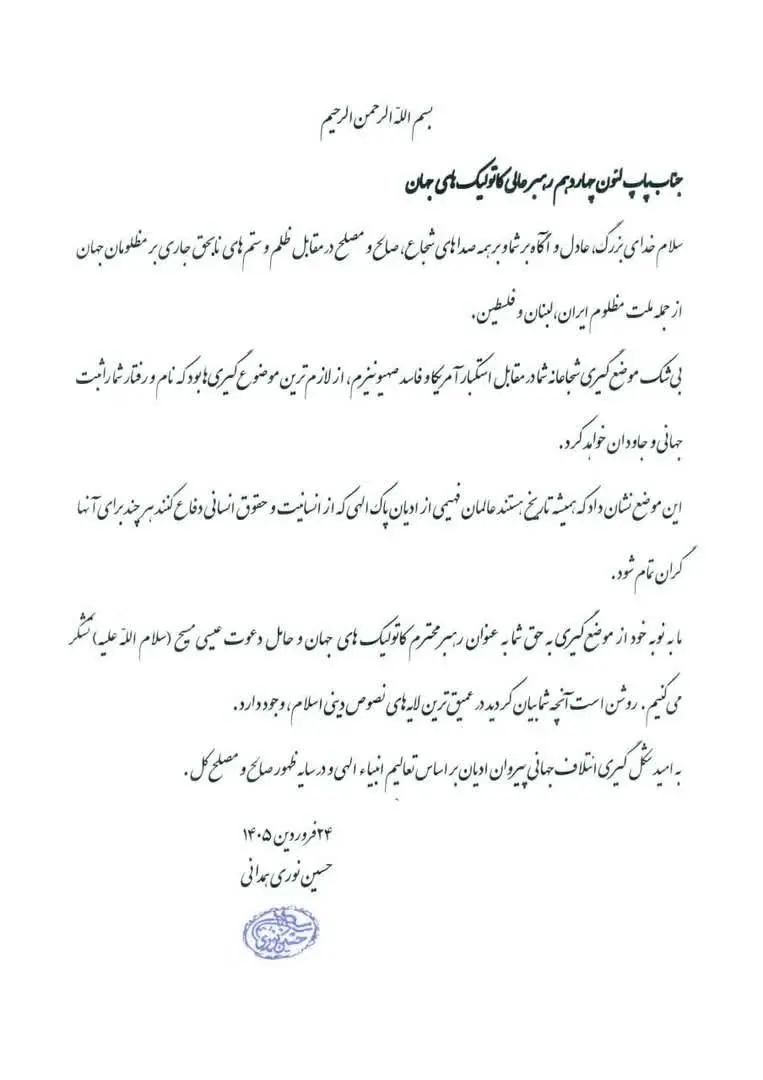 بسم الله الرحمن الرحیم
جناب پاپ لئون چهاردهم رهبر عالی کاتولیک های جهان
سلام خدای بزرگ، عادل و آگاه بر شما و بر همه صداهای شجاع، صالح و مصلح در مقابل ظلم و ستم های نابحق جاری بر مظلومان جهان
از جمله ملت مظلوم ایران، لبنان و فلسطین.
بی شک موضع گیری شجاعانه شما در مقابل استکبار آمریکا و فاسد صهیونیزم، از لازم ترین موضوع گیری ها بود که نام و رفتار شما را ثبت
جهانی و جاودان خواهد کرد.
این موضع نشان داد که همیشه تاریخ هستند عالمان فهیمی از ادیان پاک الهی که از انسانیت و حقوق انسانی دفاع کنند هر چند برای آنها
گران تمام شود.
ما به نوبه خود از موضع گیری به حق شما به عنوان رهبر محترم کاتولیک های جهان و حامل دعوت عیسی مسیح (سلام الله علیه) تشکر
می کنیم. روشن است آنچه شما بیان کردید در عمیق ترین لایه های نصوص دینی اسلام، وجود دارد.
به امید شکل گیری ائتلاف جهانی پیروان ادیان بر اساس تعالیم انبیاء الهی و در سایه ظهور صالح و مصلح کل.
۲۴ فروردین ۱۴۰۵
حسین نوری همدانی
حسین نوری